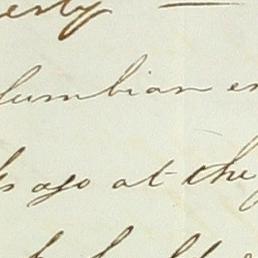 erty —
lumbian en
s ago at the